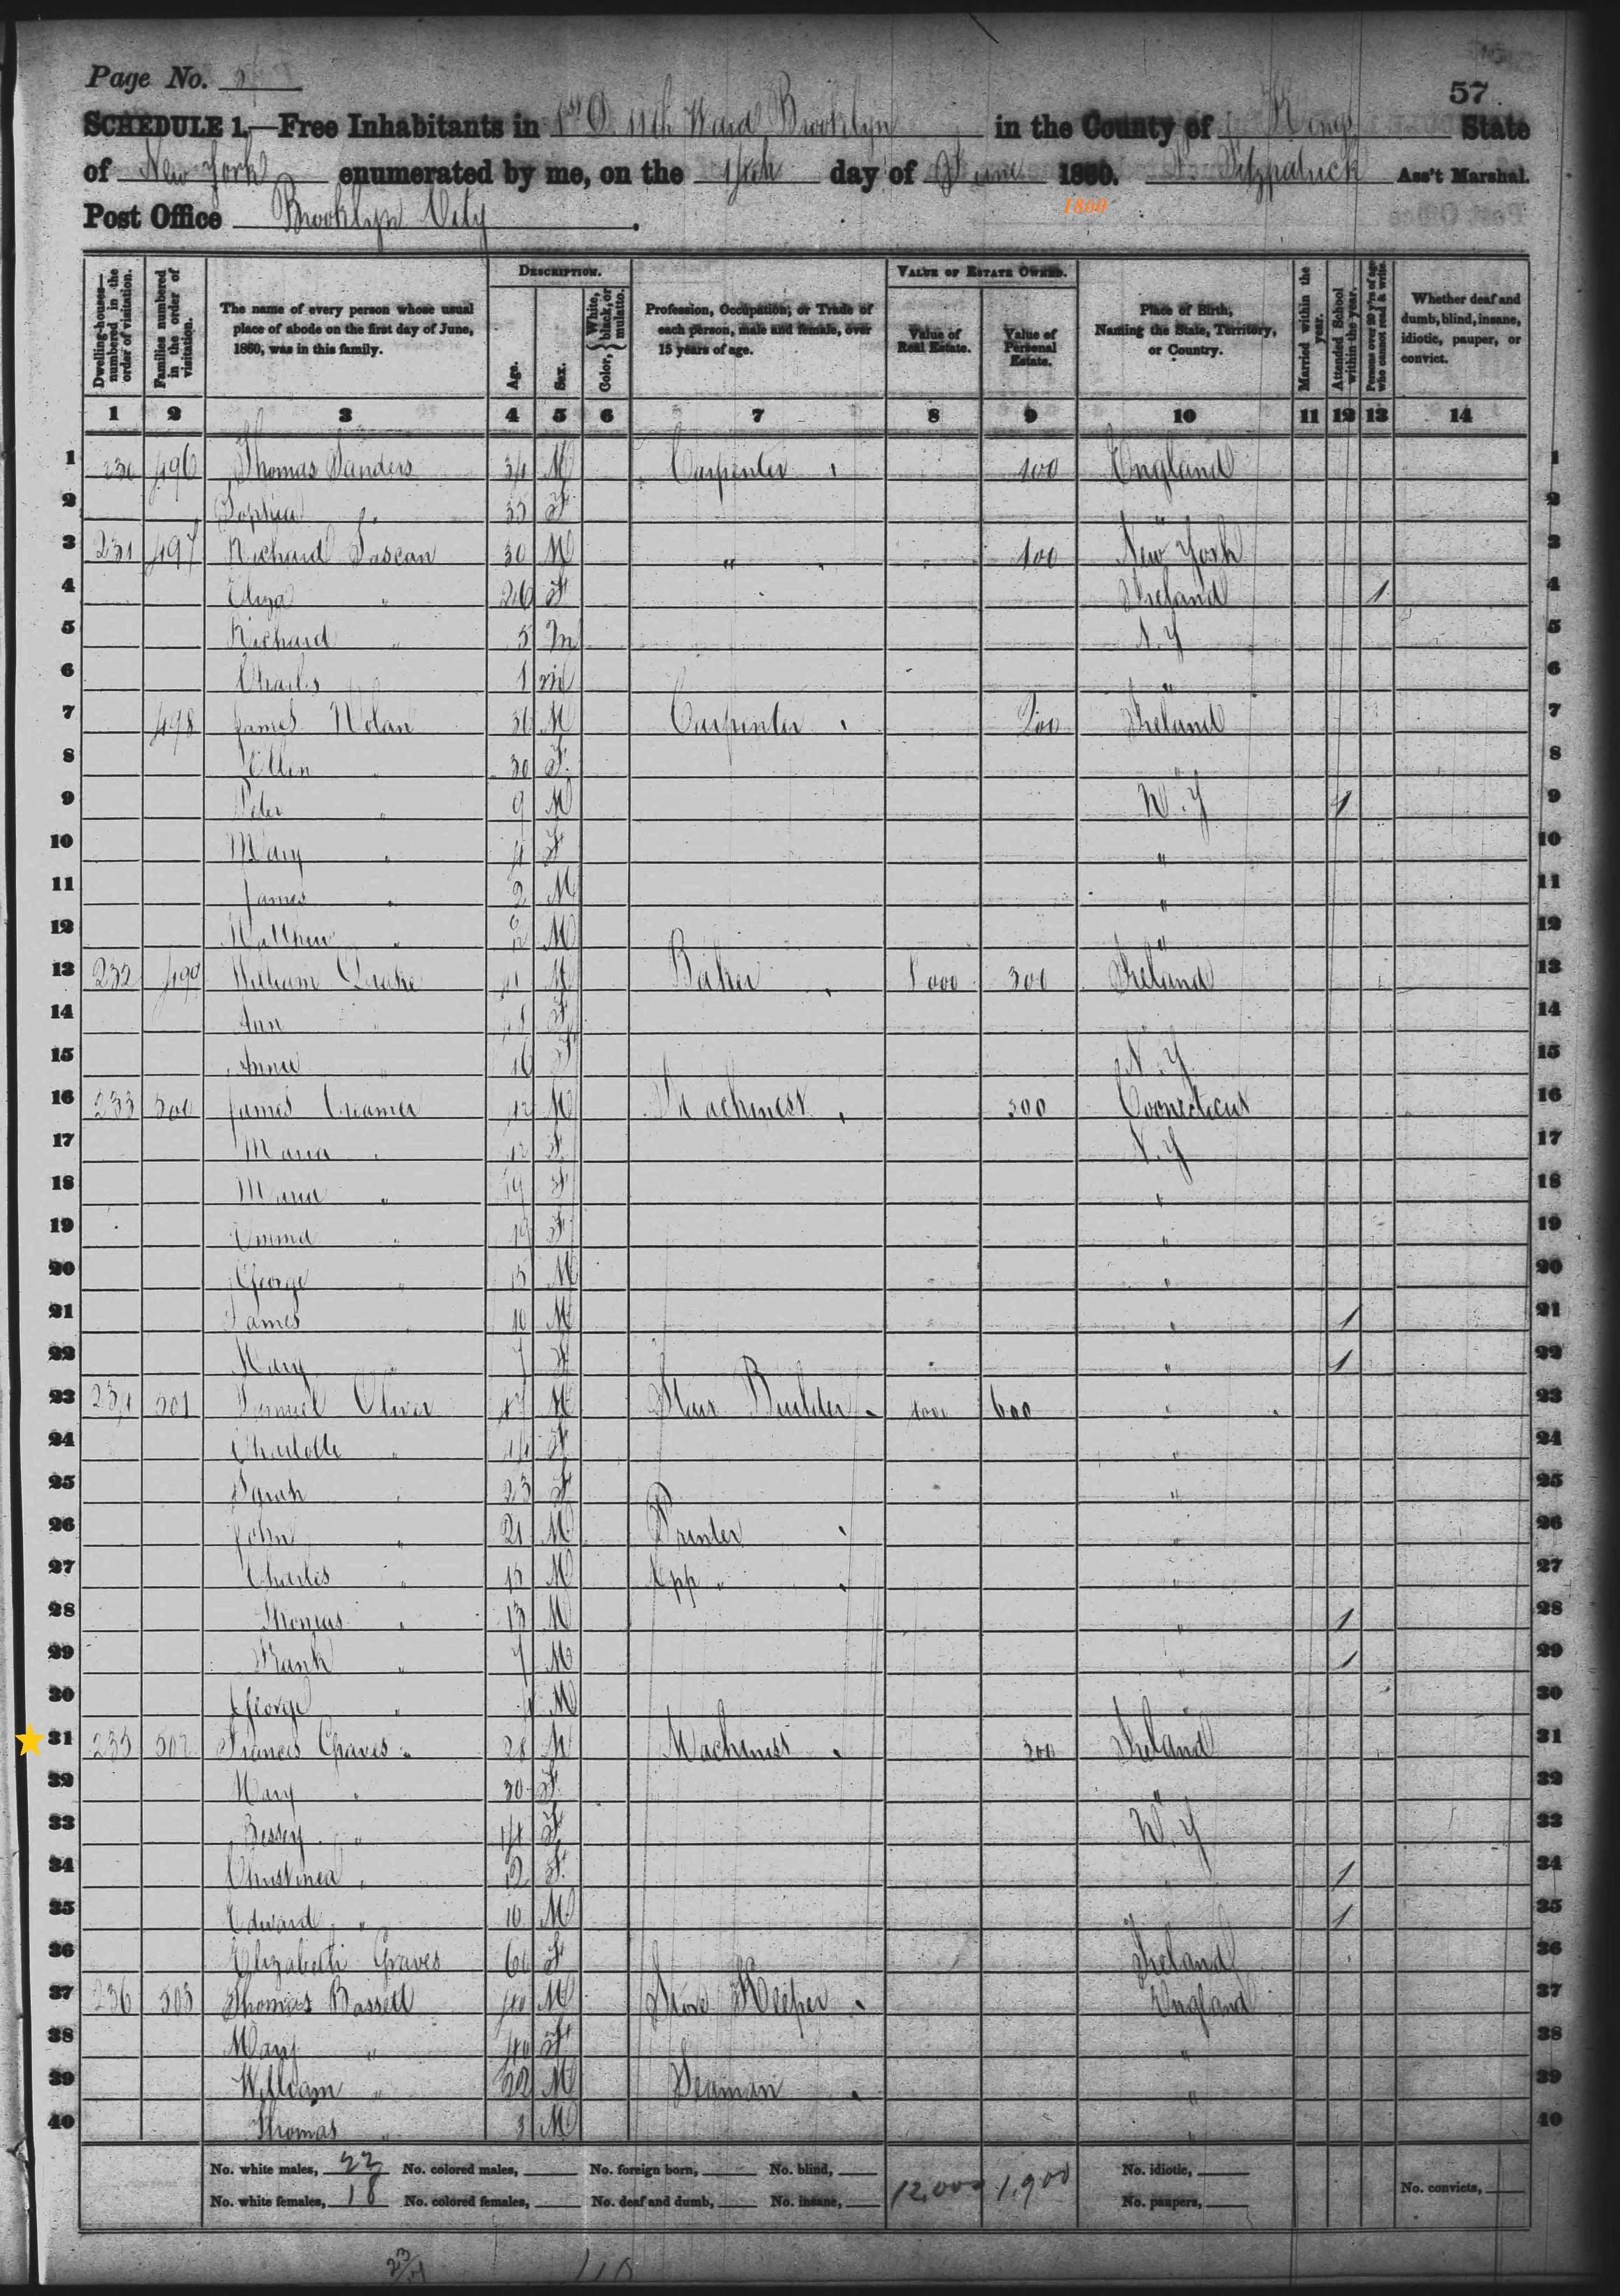 Page No.
57
SCHEDULE 1.—Free Inhabitants in 1st D 11th Ward Brooklyn in the County of Kings State
of New York enumerated by me, on the day of June 1860. Fitzpatrick Ass't Marshal.
1860
Post Office Brooklyn City.
Dwelling-houses—numbered in the order of visitation.
Families numbered in the order of visitation.
The name of every person whose usual place of abode on the first day of June, 1860, was in this family.
DESCRIPTION.
Age.
Sex.
Color, {White, black, or mulatto.
Profession, Occupation, or Trade of each person, male and female, over 15 years of age.
VALUE OF ESTATE OWNED.
Value of Real Estate.
Value of Personal Estate.
Place of Birth, Naming the State, Territory, or Country.
Married within the year.
Attended School within the year.
Persons over 20 y'rs of age who cannot read & write.
Whether deaf and dumb, blind, insane, idiotic, pauper, or convict.
1 2 3 4 5 6 7 8 9 10 11 12 13 14
1 230 496 Thomas Sanders 34 M Carpenter 100 England 1
2 Sophia " 35 F " 2
3 231 497 Richard 30 M " 100 New York 3
4 Eliza " 26 F Ireland 1 4
5 Richard " 5 M N.Y 5
6 Charles 1 M " 6
7 498 James Nolan 36 M Carpenter 200 Ireland 7
8 Ellen " 30 F " 8
9 Peter " 9 M N.Y 1 9
10 Mary " 4 F " 10
11 James " 2 M " 11
12 Matthew " M " 12
13 232 499 William 41 M Baker 300 Ireland 13
14 Ann " F 14
15 Annie " 16 F N.Y 15
16 233 500 James Creamer 42 M Machinest 300 Connecticut 16
17 Maria " 42 F N.Y 17
18 " 19 F " 18
19 Emma " F " 19
20 George " 15 M " 20
21 James 10 M " 1 21
22 Mary " 7 F " 1 22
23 234 501 Samuel Oliver 47 M Stair Builder 600 " 23
24 Charlotte " 44 F " 24
25 Sarah " 23 F " 25
26 John " 21 M Printer " 26
27 Charles " 15 M App " " 27
28 Thomas " 13 M " 1 28
29 Frank " 7 M " 1 29
30 George " M 30
31 235 502 Francis Graves " 28 M Machinist 300 Ireland 31
32 Mary " 30 F " 32
33 Bessey " 14 F N.Y 33
34 Christinea " 12 F " 1 34
35 Edward " 10 M 1 35
36 Elizabeth Graves 60 F Ireland 36
37 236 503 Thomas Bassett 40 M Store Keeper England 37
38 Mary " 40 F " 38
39 William " 22 M Seaman " 39
40 Thomas " 3 M " 40
No. white males, 22 No. colored males, No. foreign born, No. blind, 12,000 1,900 No. idiotic,
No. white females, 18 No. colored females, No. deaf and dumb, No. insane, No. paupers, No. convicts,